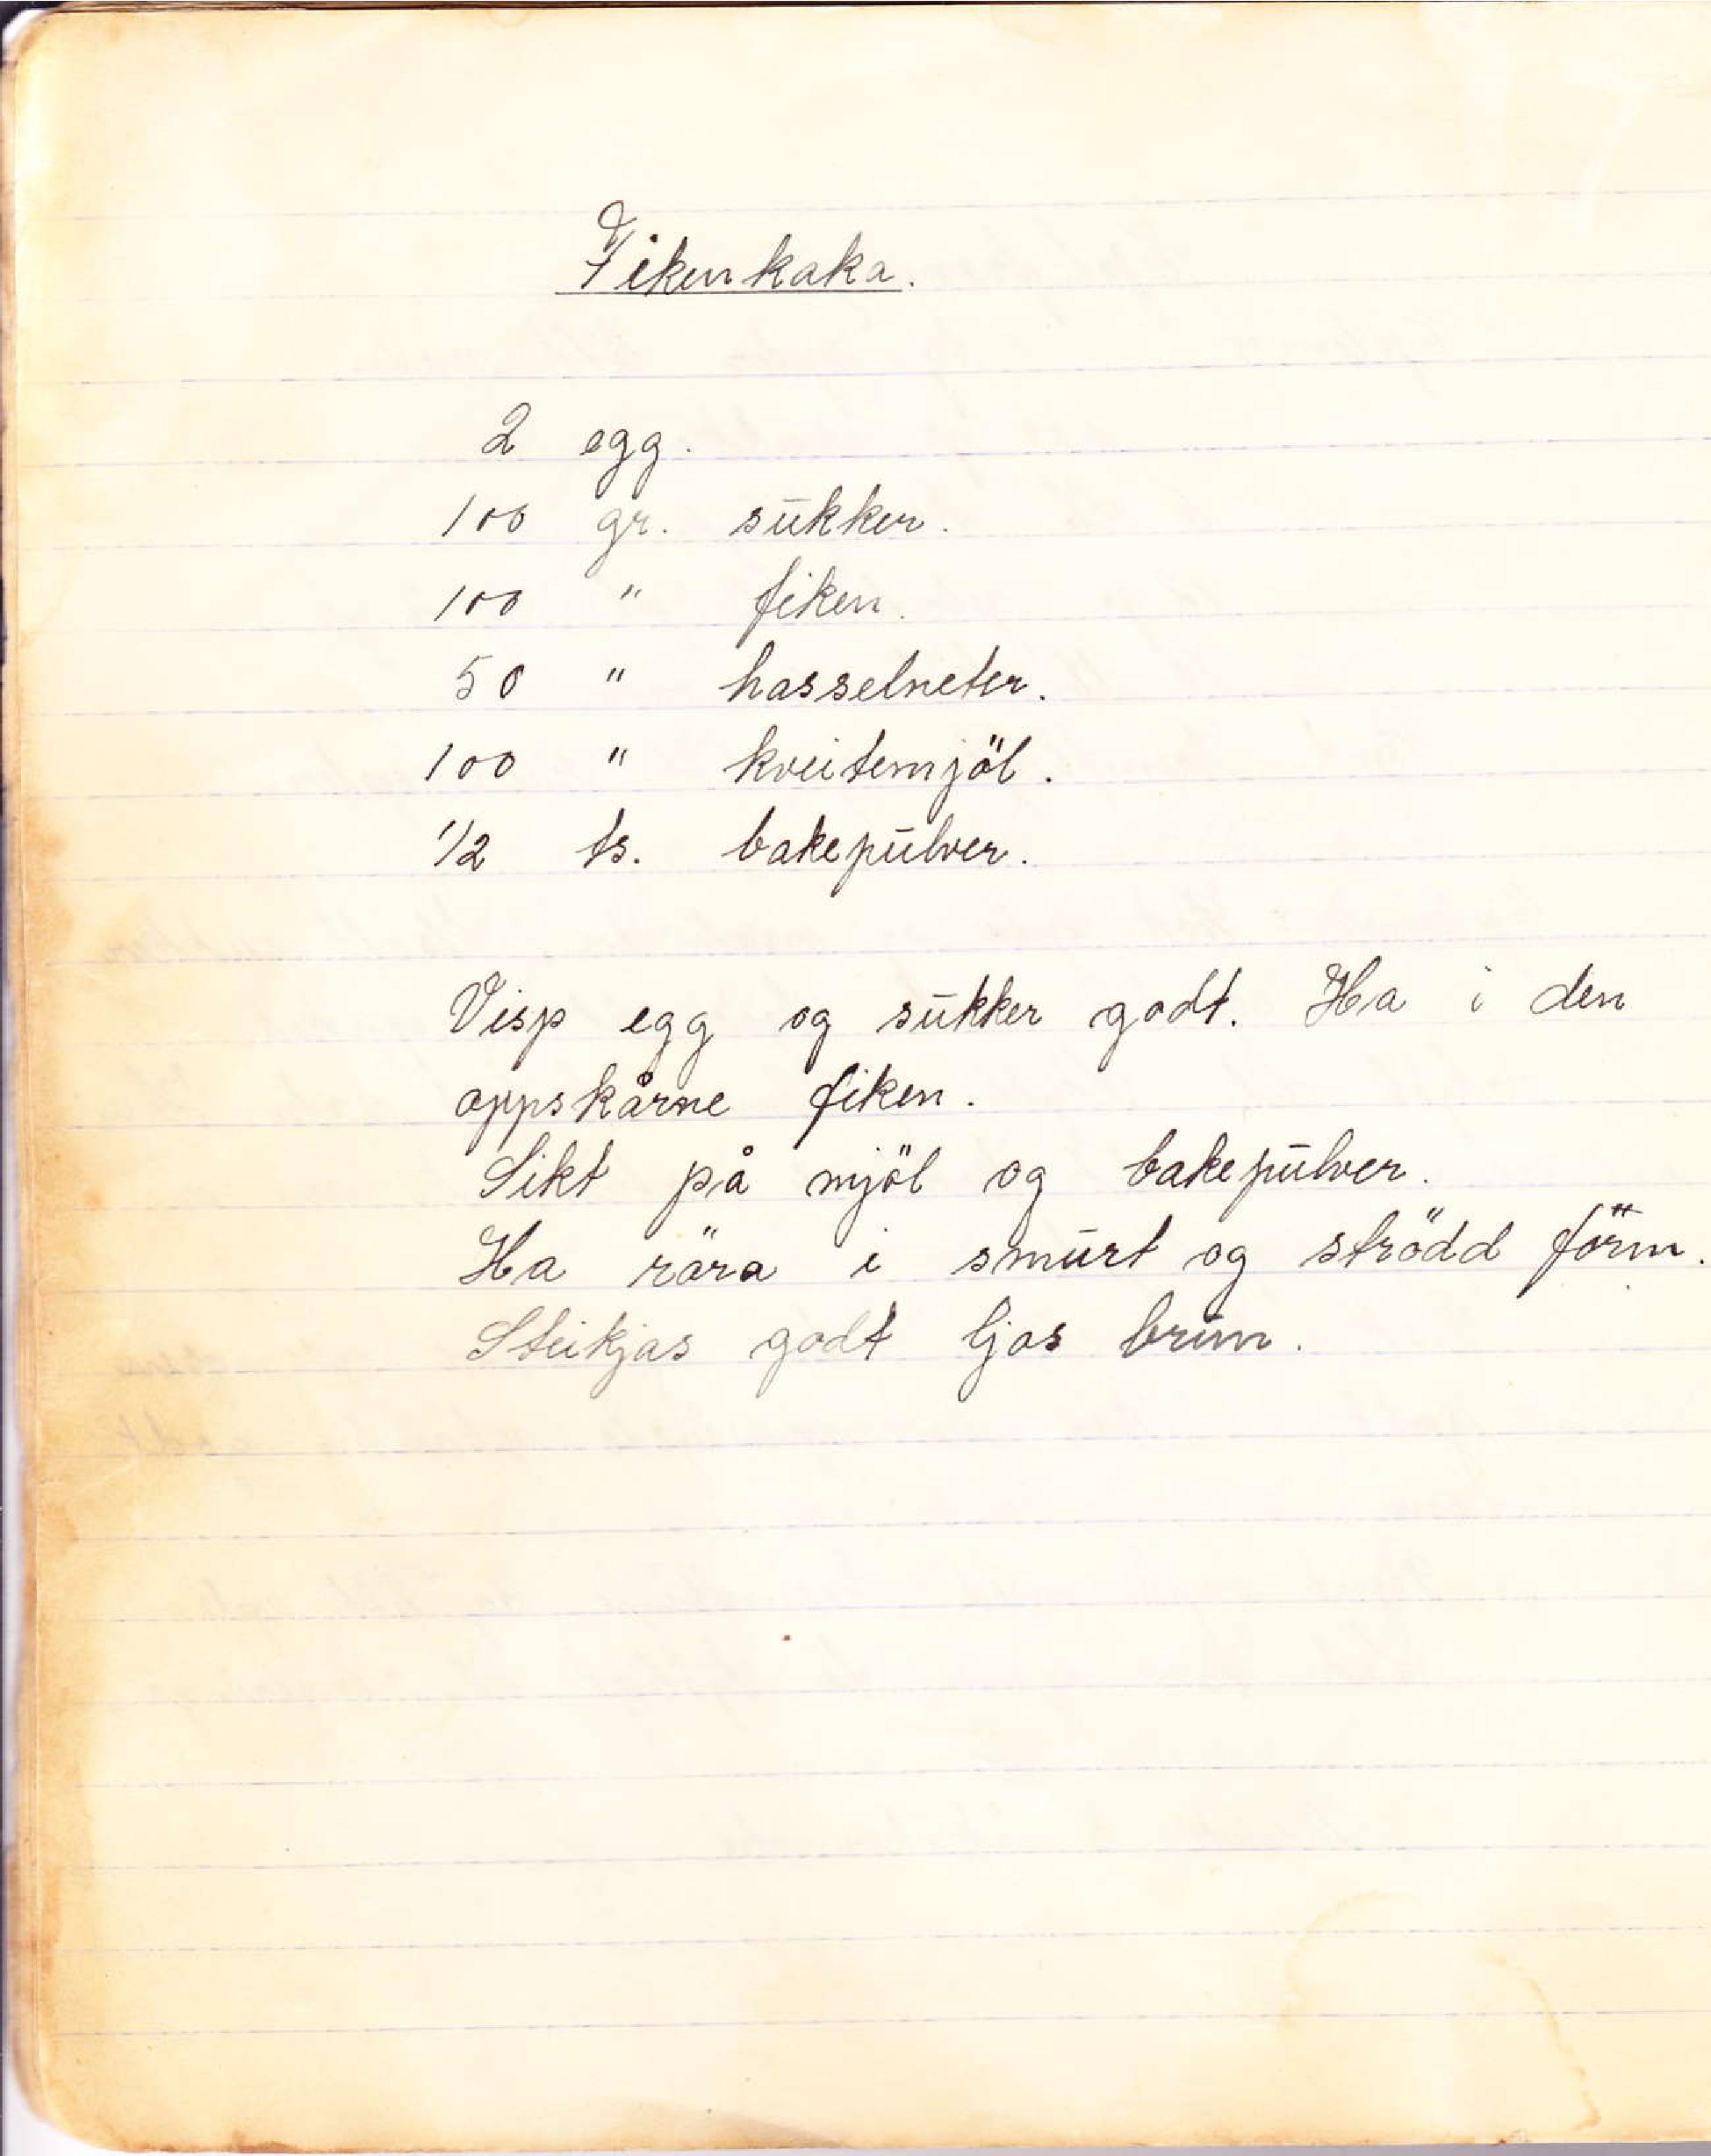 Fikenkaka.
2 egg.
100 gr. sukker.
100 " fiken.
50 " hasselneter.
100 " kveitemjöl.
1/2 ts. bakepulver.
Visp egg og sukker godt. Ha i den
oppskårne fiken.
Sikt på mjöl og bakepulver.
Ha röra i smurt og strödd förm.
Steikjas godt ljos brun.